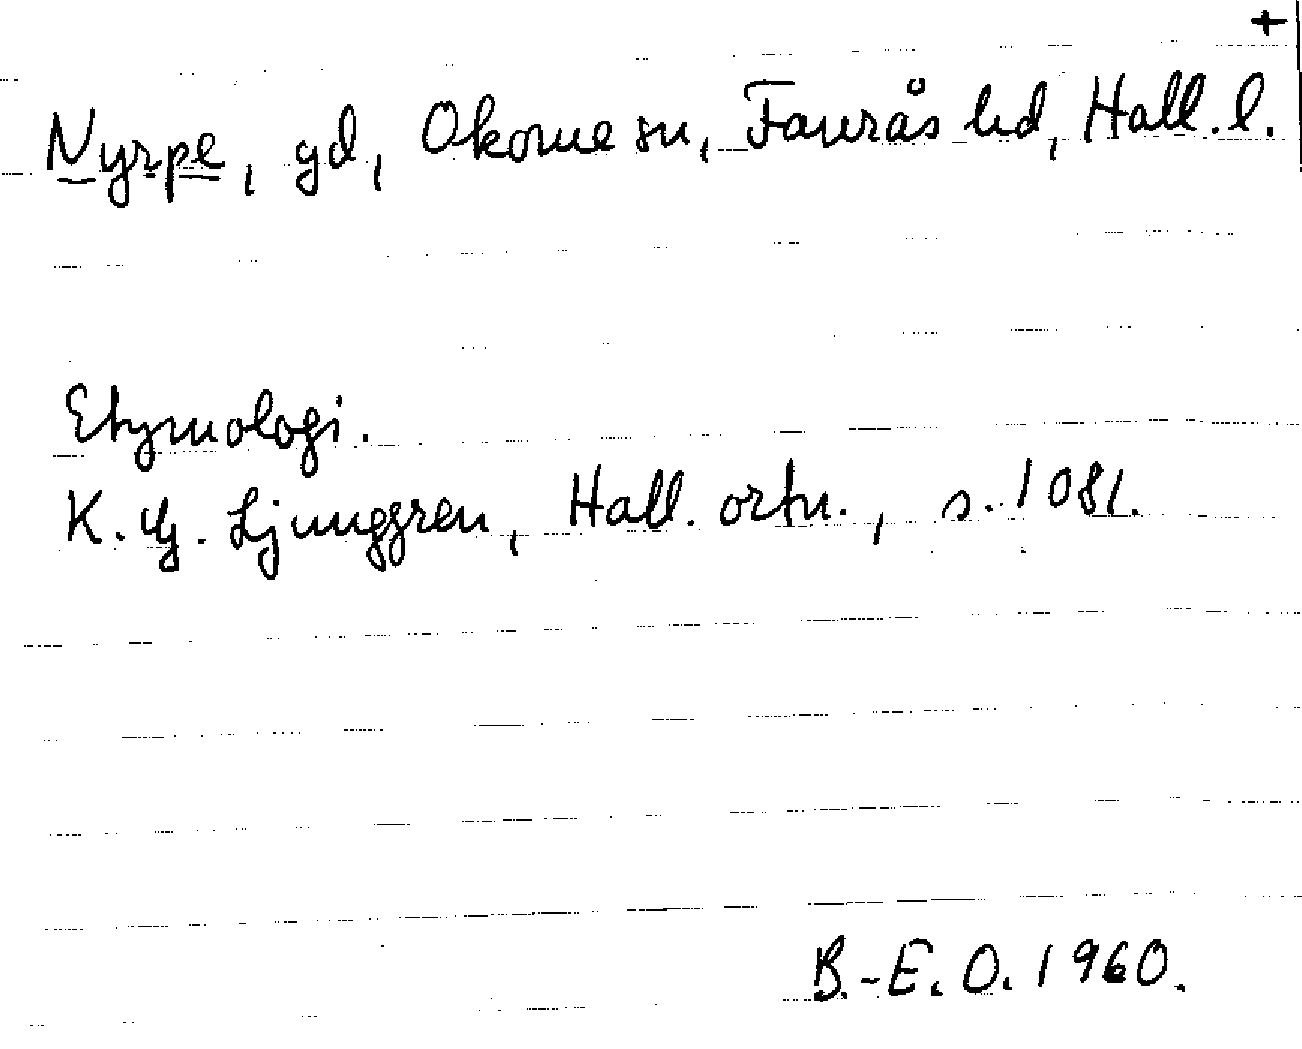 +
Nyrpe, gd, Okome sn, Faurås hd, Hall. l.
Etymologi.
K. G. Ljunggren, Hall. ortn., s. 108 f.
B.-E. O. 1960.